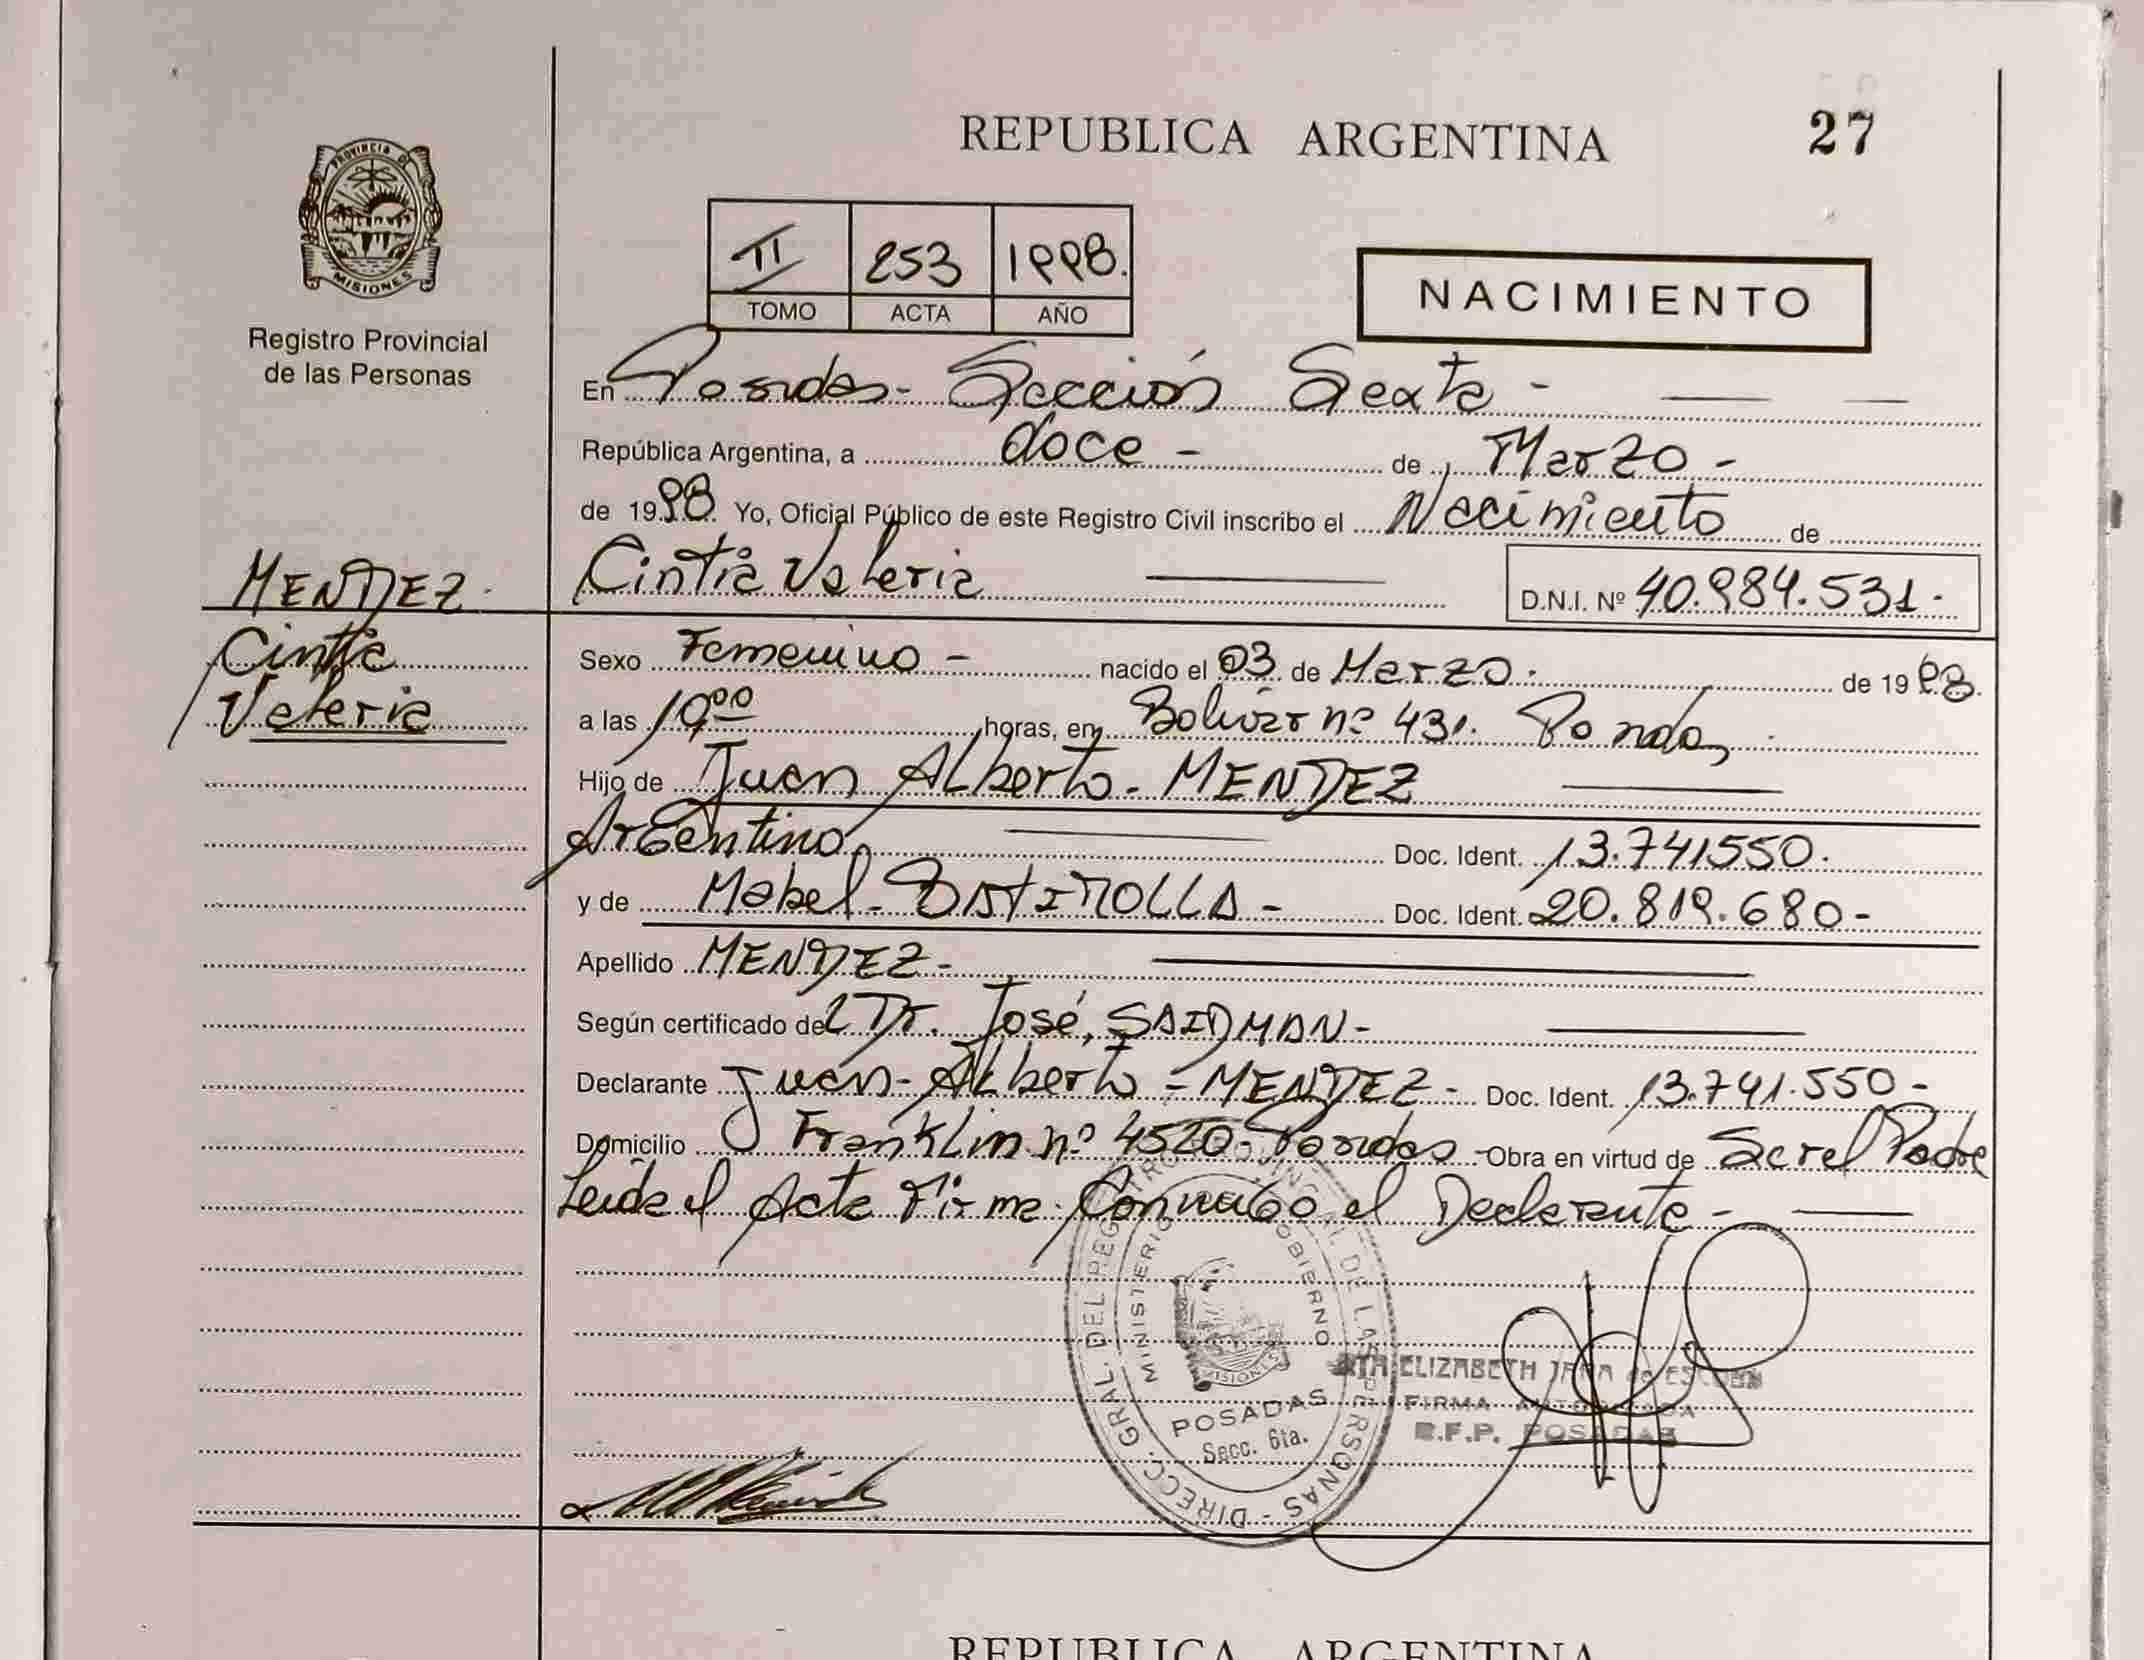 REPUBLICA ARGENTINA
27
PROVINCIA DE
MISIONES
Registro Provincial
de las Personas
II 253 1998.
TOMO ACTA AÑO
NACIMIENTO
En Posadas - Sección Sexta -
República Argentina, a doce - de Marzo -
de 1998 Yo, Oficial Público de este Registro Civil inscribo el Nacimiento de
MENDEZ.
Cintia Valeria
D.N.I. Nº 40.984.531.
Cintia
Valeria
Sexo Femenino - nacido el 03 de Marzo. de 1998.
a las 19 00 horas, en Bolívar nº 431. Posadas
Hijo de Juan Alberto - MENDEZ
Argentino Doc. Ident. 13.741550.
y de Mabel - Doc. Ident. 20.819.680 -
Apellido MENDEZ -
Según certificado del Dr. José SAIDMAN -
Declarante Juan - Alberto - MENDEZ - Doc. Ident. 13.741.550 -
Domicilio Franklin nº 4520 - Posadas - Obra en virtud de Ser el Padre
Leida el Acta Firma Conmigo el Declarante -
DIRECC. GRAL. DEL REGISTRO PROVINCIAL DE LAS PERSONAS -
MINISTERIO GOBIERNO
MISIONES
POSADAS
Secc. 6ta.
ELIZABETH JARA de
FIRMA AUTORIZADA
R.F.P. POSADAS
REPUBLICA ARGENTINA